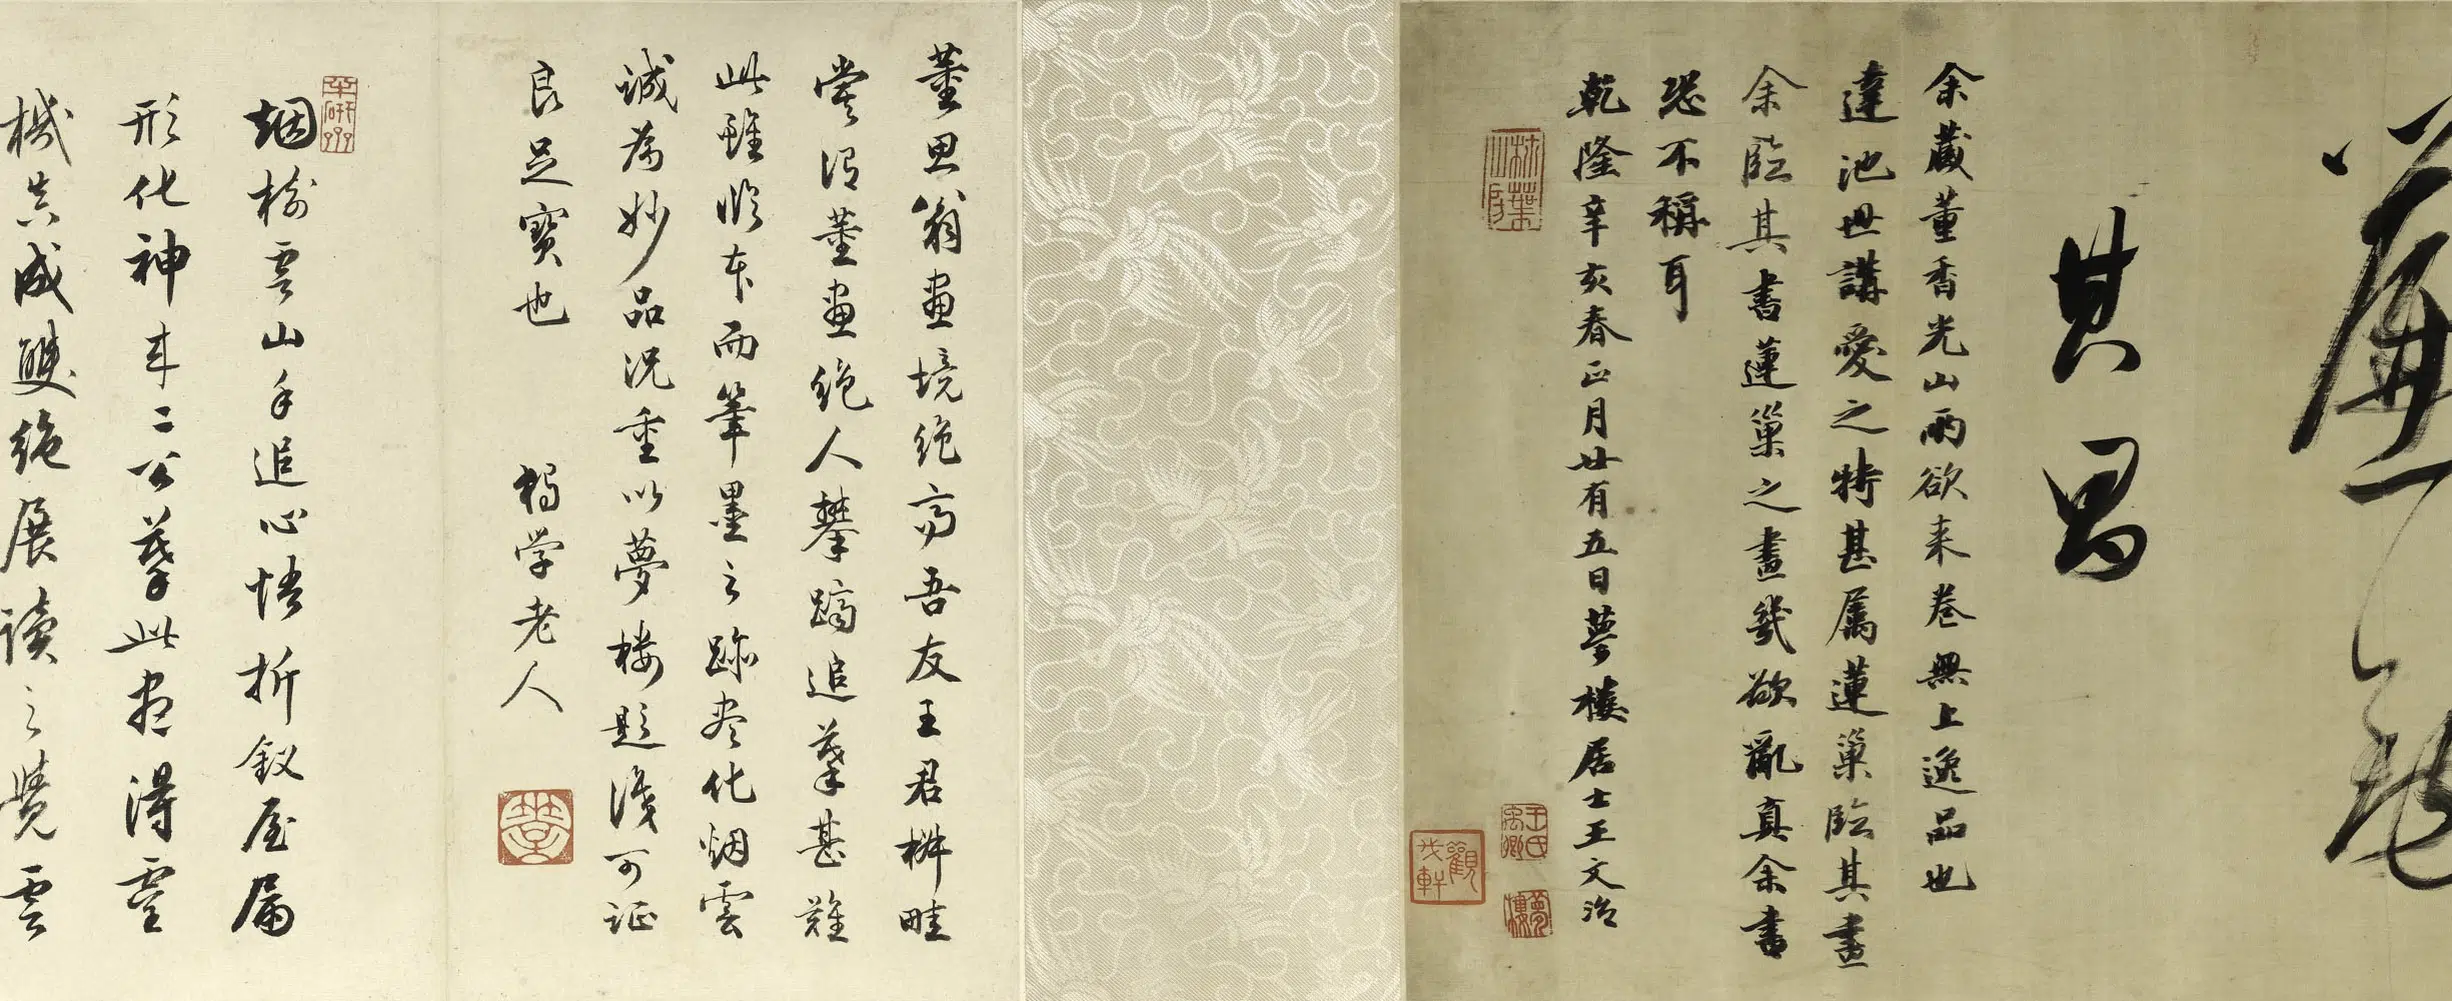 其昌
余藏董香光山雨欲来卷無上逸品也
達池世講愛之特甚属蓮巢臨其畫
余臨其書蓮巢之畫幾欲亂真余書
恐不稱耳
乾隆辛亥春正月廿有五日夢樓居士王文治
林葉山房
王氏禹卿
夢樓
觀
軒
董思翁畫境絶高吾友王君楙畦
嘗謂董畫絶人攀躋追摹甚難
此雖臨本而筆墨之跡尽化烟雲
誠為妙品況重以夢樓題識可証
良足寶也
楊学老人
烟樹雲山手追心悟折釵屋漏
形化神來二公摹此盡得靈
機真成雙絶展讀之覺雲